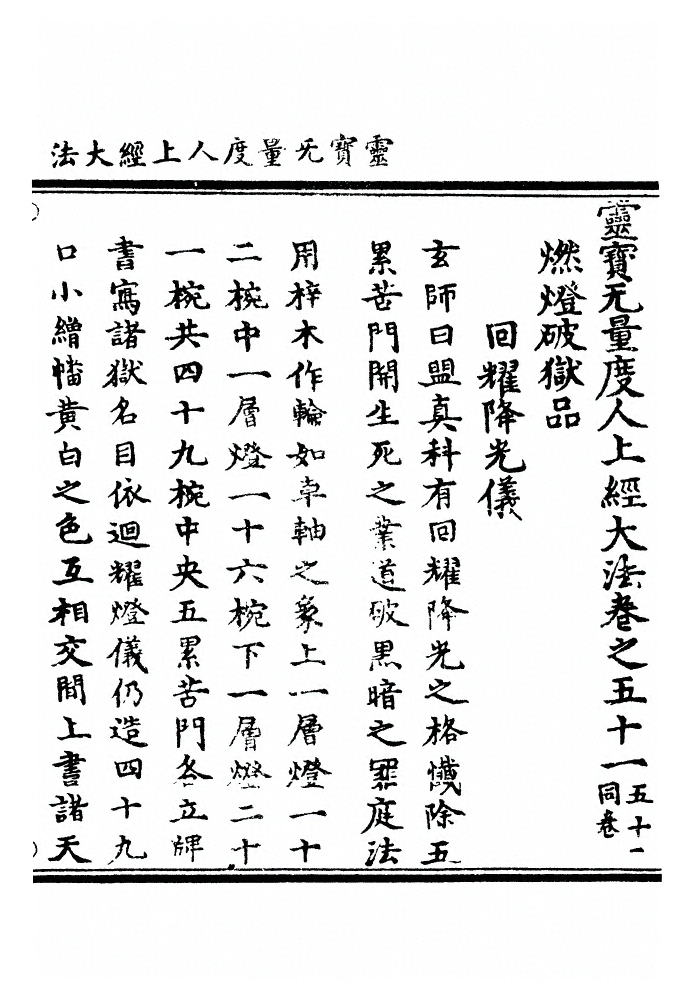 靈寶无量度人上經大法
靈寶无量度人上經大法卷之五十一五十二同卷
燃燈破獄品
回耀降光儀
玄師曰盟真科有回耀降光之格懺除五
累苦門開生死之業道破黑暗之罪庭法
用梓木作輪如車軸之象上一層燈一十
二椀中一層燈一十六椀下一層燈二十
一椀共四十九椀中央五累苦門各立牌
書寫諸獄名目依迴耀燈儀仍造四十九
口小繒幡黃白之色互相交間上書諸天